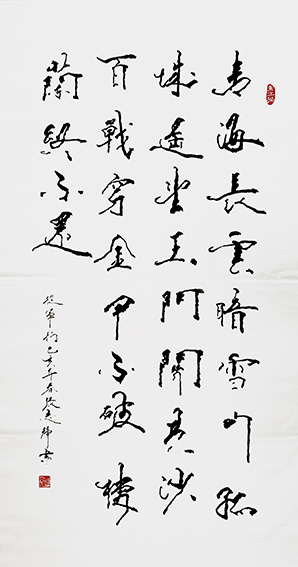 青海長雲暗雪山孤
城遙望玉門關黃沙
百戰穿金甲不破樓
蘭終不還
從軍行己亥年春書